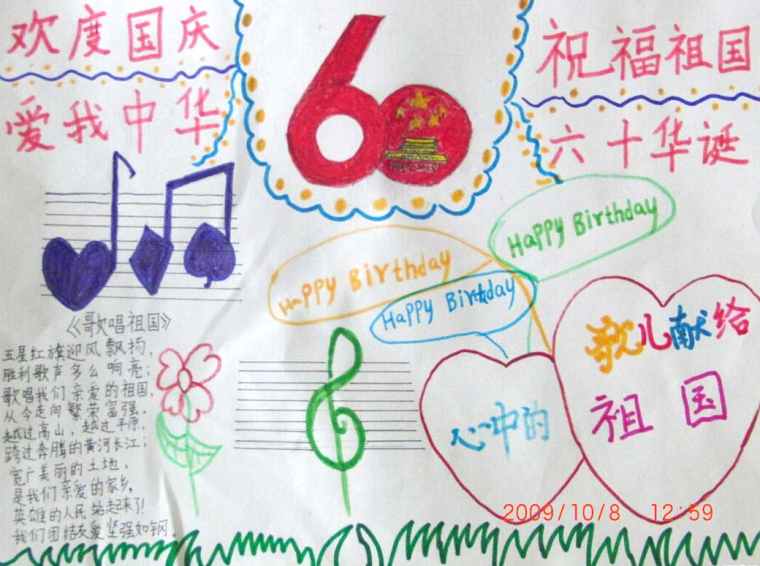 欢度国庆
爱我中华
60
祝福祖国
六十华诞
Happy Birthday
Happy Birthday
Happy Birthday
《歌唱祖国》
五星红旗迎风飘扬,
胜利歌声多么响亮;
歌唱我们亲爱的祖国,
从今走向繁荣富强。
越过高山,越过平原,
跨过奔腾的黄河长江;
宽广美丽的土地,
是我们亲爱的家乡,
英雄的人民站起来了!
我们团结友爱坚强如钢。
心中的
歌儿献给
祖国
2009/10/8 12:59